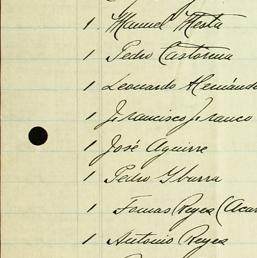 1 Manuel Mesta
1 Pedro Castorena
1 Leonardo Hernánd
1 Francisco Franco
1 José Aguirre
1 Pedro Yburra
1 Tomas Reyes (Acar
1 Antonio Reyes